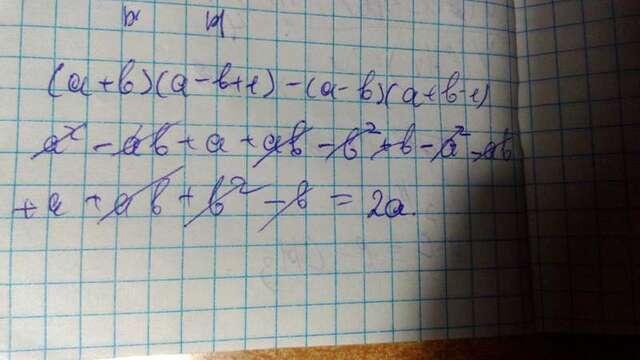 (a+b)(a-b+1)-(a-b)(a+b-1)
a²-ab+a+ab-b²+b-a²-ab
+a+ab+b²-b=2a.